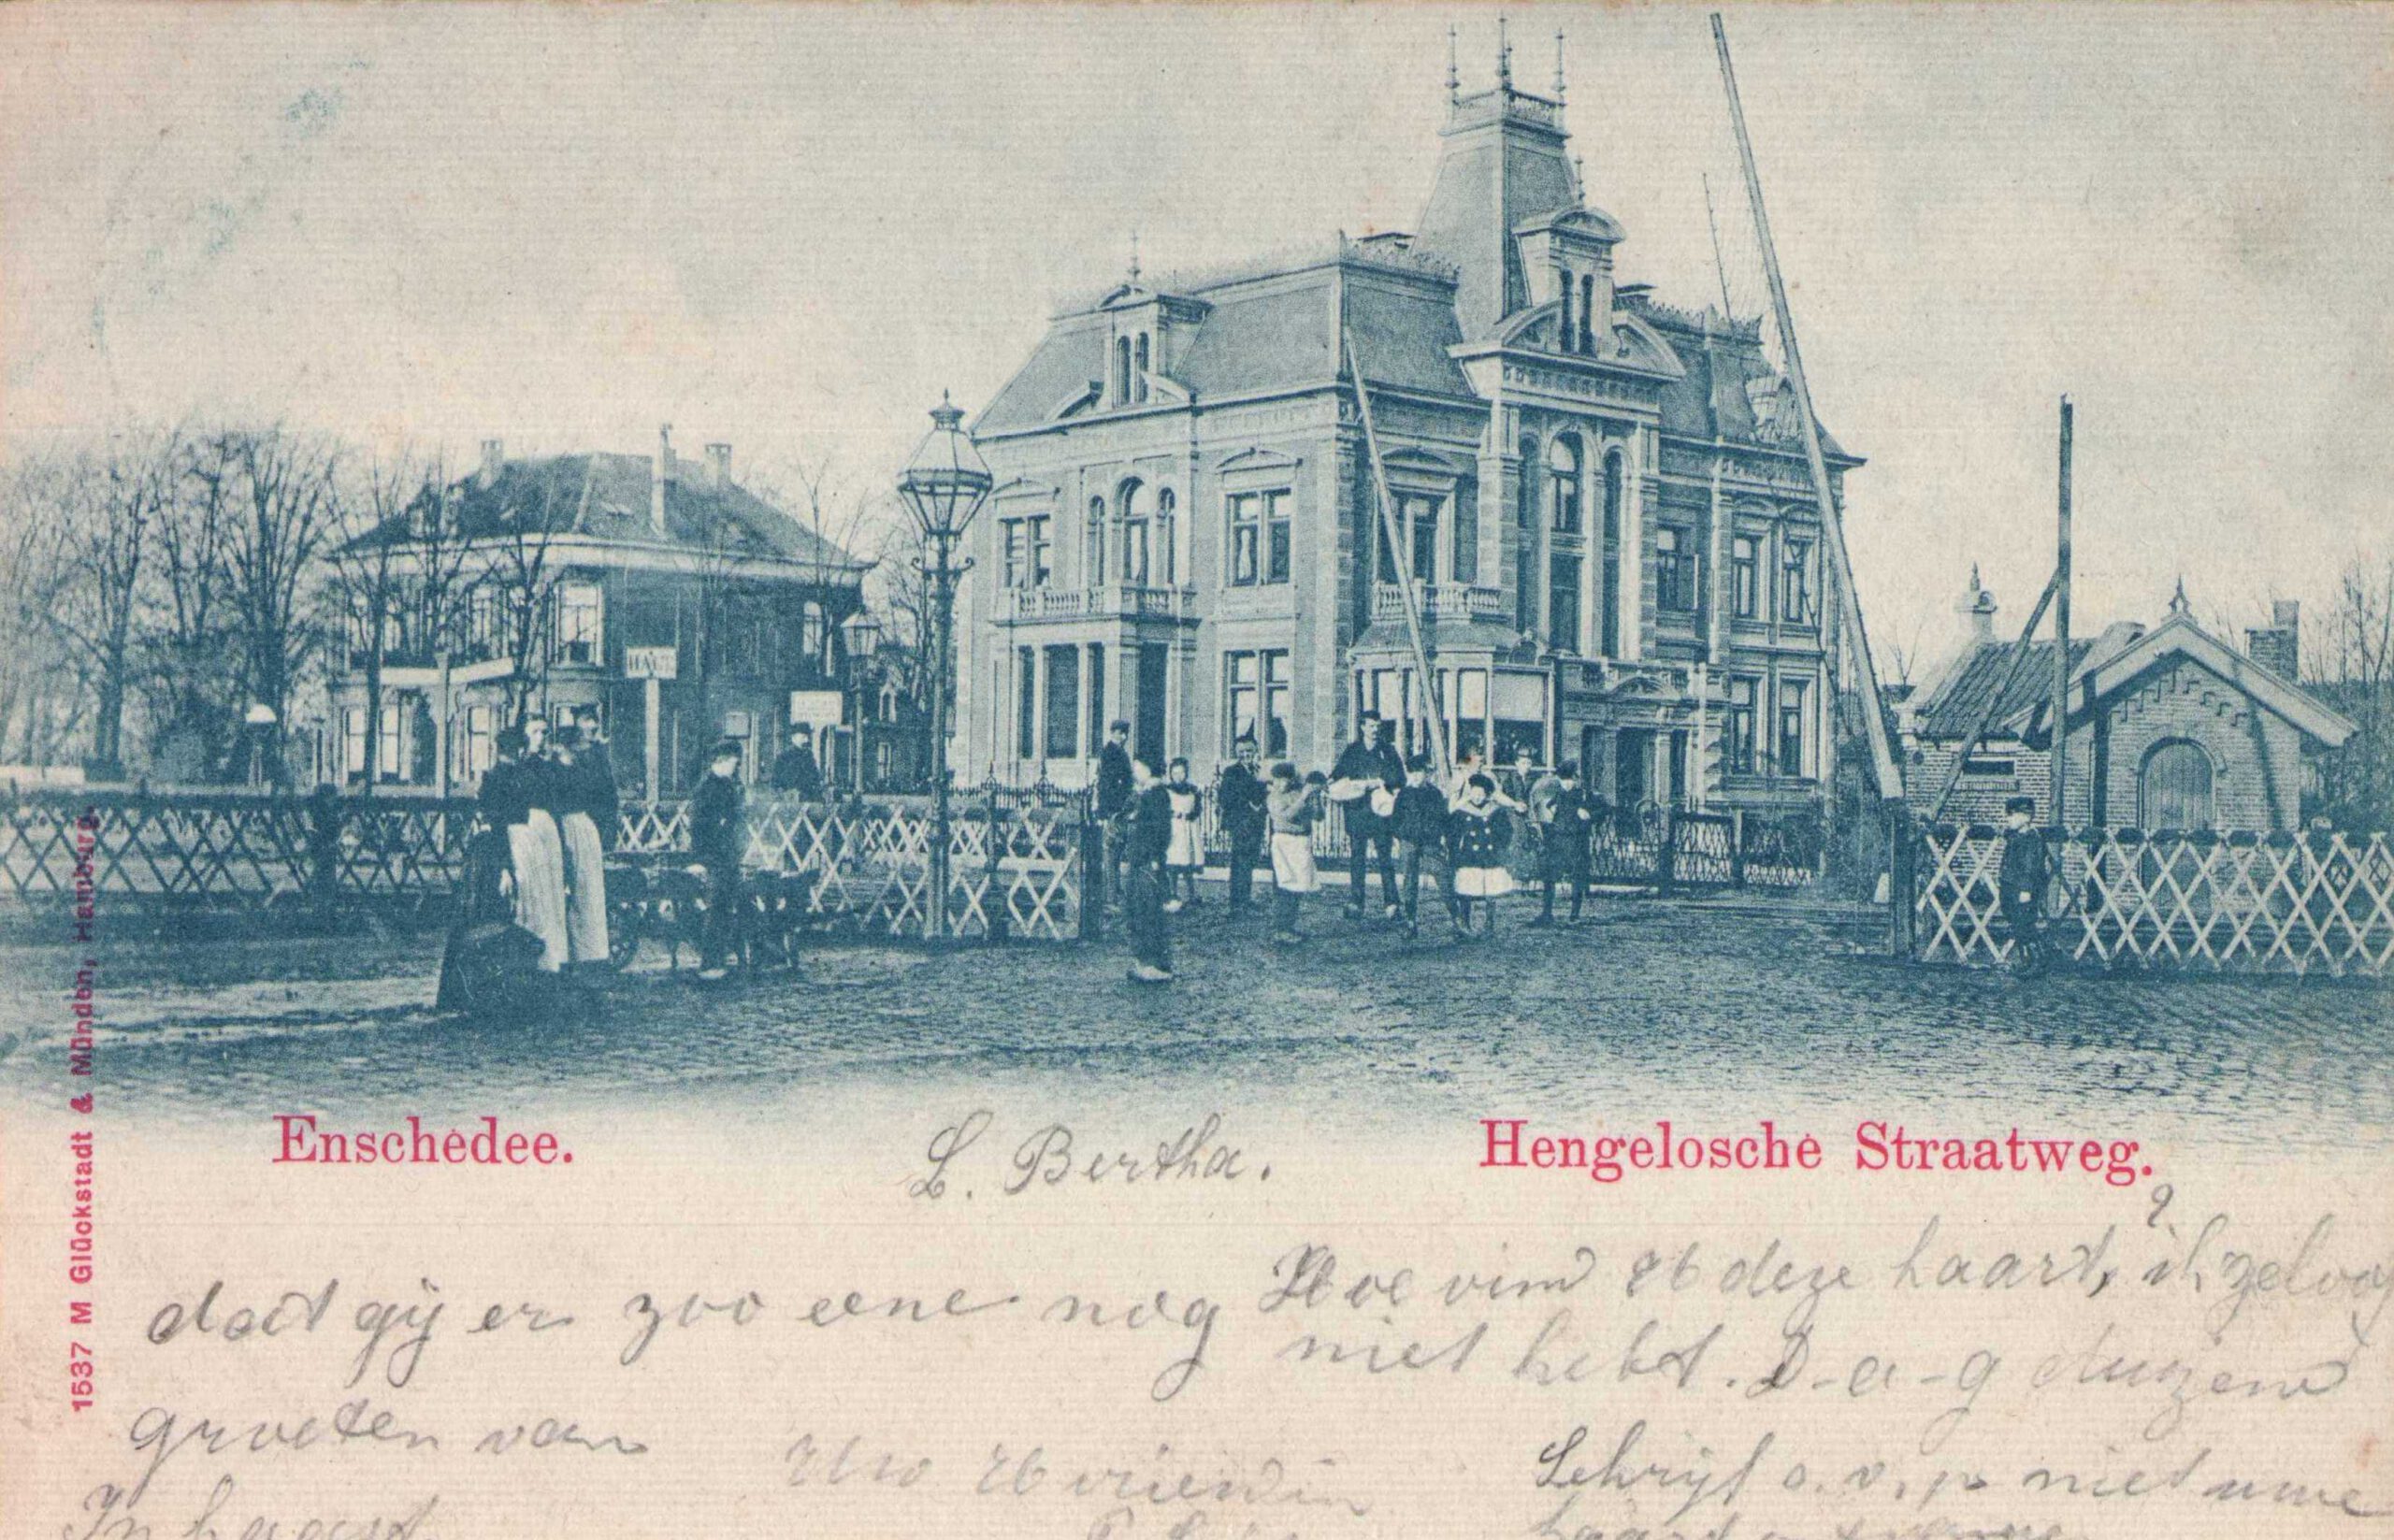 HALT
1537 M Glückstadt & Münden, Hamburg.
Enschedee.
Hengelosche Straatweg.
L. Bertha.
Hoe vind deze kaart, ? ik geloof
dat gij er zoo eene nog
niet hebt. D-a-g duizend
groeten van
Uw vriendin
Schrijf s.v.p niet uwe
In haast